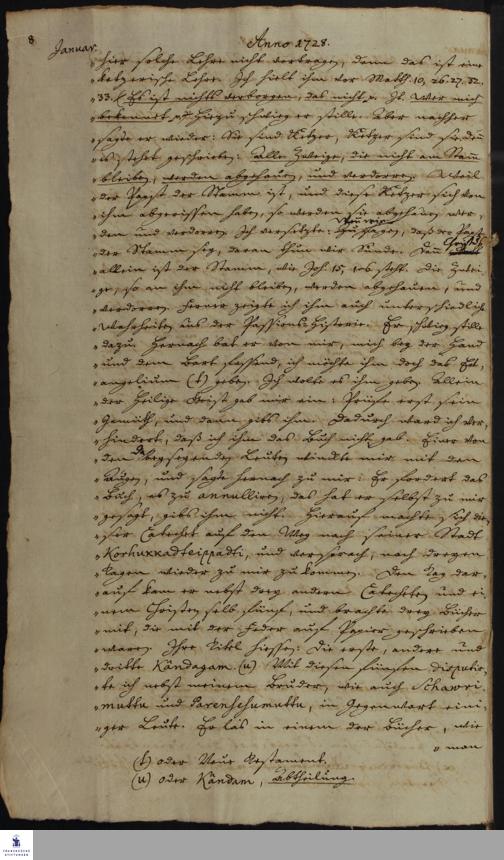 8
Januar.
Anno 1728.
„hier solche Lehre nicht vortragen, denn das ist eine
„ketzerische Lehre. Ich hielt ihm vor Matth. 10, 26. 27. 32.
„33. Es ist nichts verborgen, das nicht p. It. Wer mich
„bekennet p. Hiezu schwieg er stille. Aber nachher
„sagte er wieder: Sie sind Ketzer, Ketzer sind sie; denn
„es stehet geschrieben: alle Zweige, die nicht am Stam̄
„bleiben, werden abgehauen, und verdorren. Weil
„der Papst der Stamm ist, und diese Ketzer sich von
„ihm abgerissen haben, so werden sie abgehauen wer„
„den und verdorren. Ich versetzte: Wenn wir sagen, daß der Papst
„der Stamm sey, daran thun wir Sünde. Denn Christus
„allein ist der Stamm, wie Joh. 15, steht. Die Zwei„
„ge, so an ihm nicht bleiben, werden abgehauen, und
„verdorren. Hierauf zeigte ich ihm auch unterschiedliche
„Wahrheiten aus der Passions-Historie. Er schwieg stille
„dazu. Hernach bat er von mir, mich bey der Hand
„und dem Bart fassend, ich möchte ihm doch das Ev„
„angelium (t) geben. Ich wolte es ihm geben. Allein
„der Heilige Geist gab mir ein: Prüfe erst sein
„Gemüth, und dann gibs ihm. Dadurch ward ich ver„
„hindert, daß ich ihm das Buch nicht gab. Einer von
„den beystehenden Leuten winckte mir mit den
„Augen, und sagte hernach zu mir: Er fordert das
„Buch, es zu annulliren, das hat er selbst zu mir
„gesagt, gibs ihm nicht. Hierauf machte sich die„
„ser Catechet auf den Weg nach seiner Stadt
„Korhukkadteippadti, und versprach, nach dreyen
„Tagen wieder zu mir zu kommen. Den Tag dar„
„auf kam er nebst drey andern Catecheten und ei„
„nem Christen selb fünft, und brachte drey Bücher
„mit, die mit der Feder auf Papier geschrieben
„waren. Ihre Titel hiessen: Die erste, andere und
„dritte Kándagam. (u) Mit diesen fünfen disputir„
„te ich nebst meinem Bruder, wie auch Schawri„
„muttu und Parenschsumuttu, in Gegenwart eini„
„ger Leute. Er las in einem der Bücher, wie
„man
(t) oder Neue Testament.
(u) oder Kándam, Abtheilung.